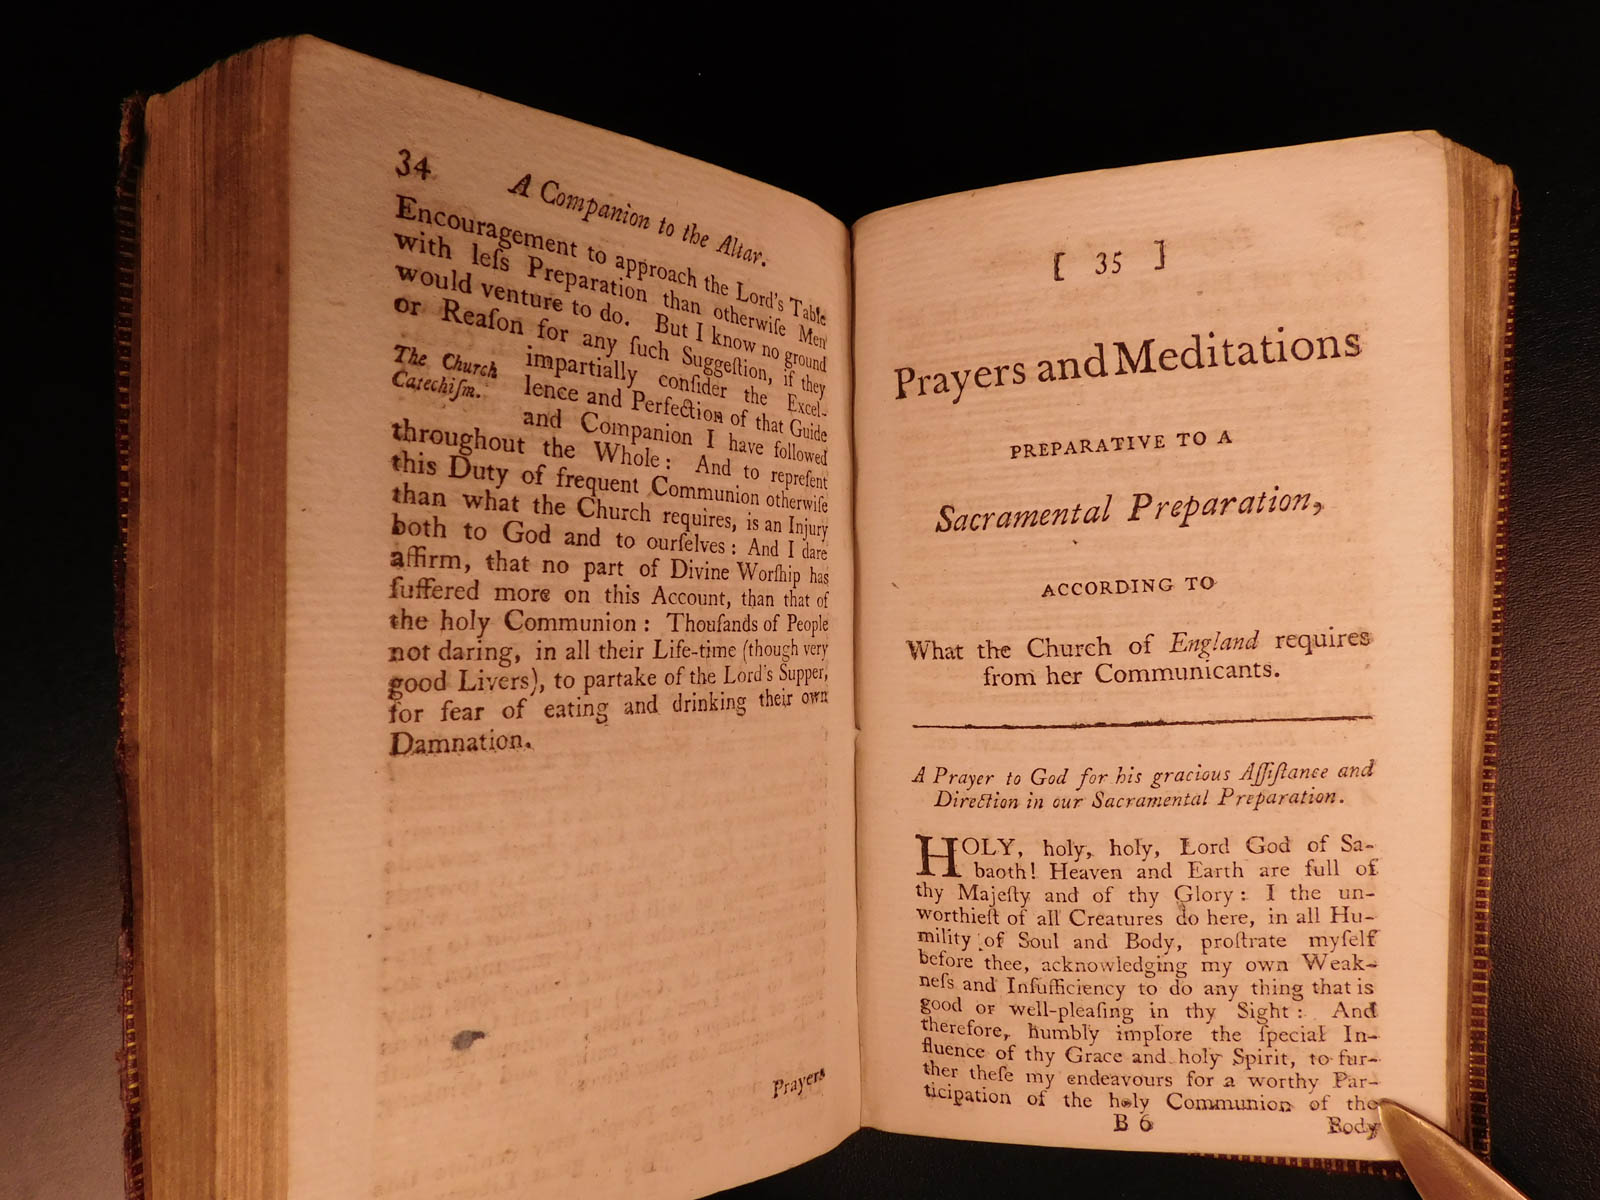 34
A Companion to the Altar.
Encouragement to approach the Lord's Table
with leſs Preparation than otherwiſe Men
would venture to do. But I know no ground
or Reaſon for any ſuch Suggeſtion, if they
The Church
Catechiſm.
impartially conſider the Excel-
lence and Perfection of that Guide
and Companion I have followed
throughout the Whole: And to repreſent
this Duty of frequent Communion otherwiſe
than what the Church requires, is an Injury
both to God and to ourſelves: And I dare
affirm, that no part of Divine Worſhip has
ſuffered more on this Account, than that of
the holy Communion: Thouſands of People
not daring, in all their Life-time (though very
good Livers), to partake of the Lord's Supper,
for fear of eating and drinking their own
Damnation.
Prayers
[ 35 ]
Prayers and Meditations
PREPARATIVE TO A
Sacramental Preparation,
ACCORDING TO
What the Church of England requires
from her Communicants.
A Prayer to God for his gracious Aſſiſtance and
Direction in our Sacramental Preparation.
HOLY, holy, holy, Lord God of Sa-
baoth! Heaven and Earth are full of
thy Majeſty and of thy Glory: I the un-
worthieſt of all Creatures do here, in all Hu-
mility of Soul and Body, proſtrate myſelf
before thee, acknowledging my own Weak-
neſs and Inſufficiency to do any thing that is
good or well-pleaſing in thy Sight: And
therefore, humbly implore the ſpecial In-
fluence of thy Grace and holy Spirit, to fur-
ther theſe my endeavours for a worthy Par-
ticipation of the holy Communion of the
B 6
Body